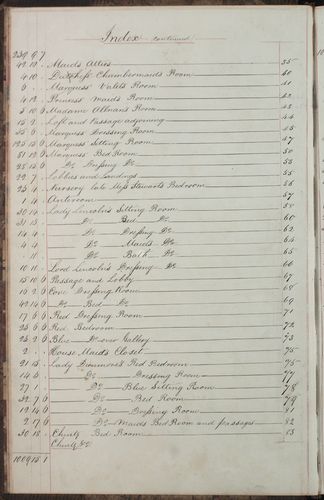 Index continued
239 9 7
42 18 Maids Attics 35
4 10 Dutchess Chambermaids Room 40
6 Marquess' Valets Room 41
4 12 Princess Maids Room 42
5 10 6 Madame Allnars Room 43
15 9 Loft and Passage adjoining 44
35 6 Marquess Dressing Room 45
125 15 6 Marquess Sitting Room 47
51 12 6 Marquess Bed Room 50
28 15 6 Do Dressing Do 53
22 7 Lobbies and Landings 55
25 4 Nursery late Miss Stewarts Bedroom 55
1 4 Anteroom 56
30 14 Lady Lincolns Sitting Room 57
31 15 Do Bed Do 58
14 4 Do Dressing Do 60
4 4 Do Maids Do 62
11 Do Bath Do 64
10 11 Lord Lincolns Dressing Do 65
15 10 6 Passage and Lobby 66
14 2 6 Cone Dressing Room 67
42 14 6 Do Bed Do 68
17 6 6 Red Dressing Room 69
25 6 6 Red Bedroom 71
25 2 6 Blue Do over Gallery 72
2 House Maids Closet 73
21 15 Lady Dunmore's Red Bedroom 75
14 6 Do Dressing Room 75
27 Do Blue Sitting Room 77
32 7 6 Do Bed Room 78
12 14 6 Do Dressing Room 79
2 17 6 Do Maids Bed Room and passages 81
30 18 Bed Room 82
83
1009 15 1